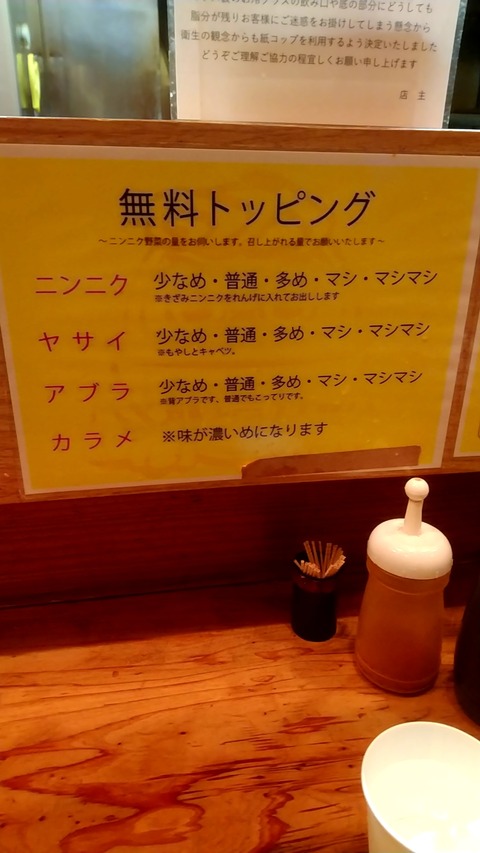 お冷用グラスの飲み口や底の部分にどうしても
脂分が残りお客様にご迷惑をお掛けしてしまう懸念から
衛生の観念からも紙コップを利用するよう決定いたしました
どうぞご理解ご協力の程宜しくお願い申し上げます
店 主
無料トッピング
～ニンニク野菜の量をお伺いします。召し上がれる量でお願いいたします～
ニンニク 少なめ・普通・多め・マシ・マシマシ
※きざみニンニクをれんげに入れてお出しします
ヤサイ 少なめ・普通・多め・マシ・マシマシ
※もやしとキャベツ。
アブラ 少なめ・普通・多め・マシ・マシマシ
※背アブラです、普通でもこってりです。
カラメ ※味が濃いめになります